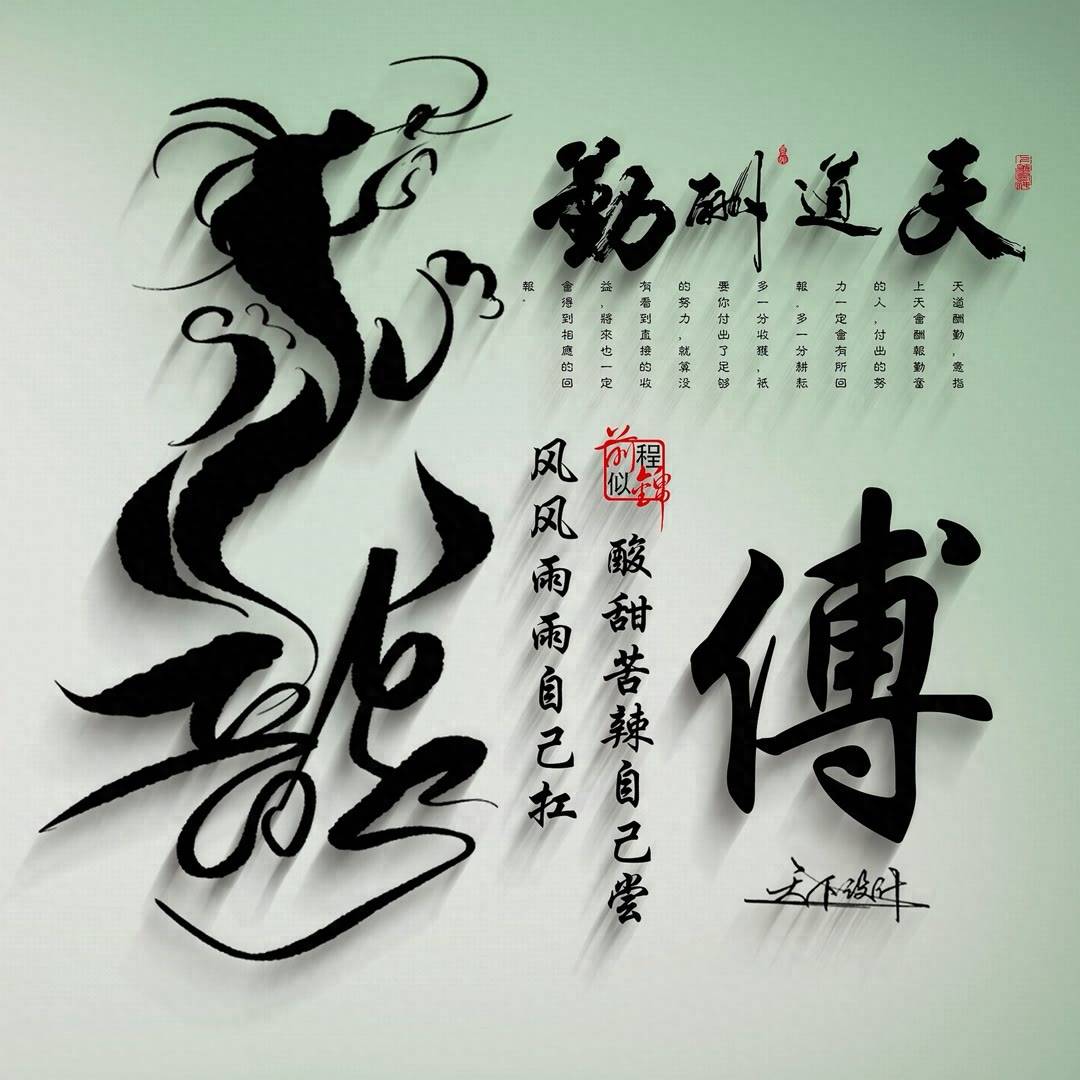 天道酬勤
天道酬勤，意指
上天會酬報勤奮
的人，付出的努
力一定會有所回
報。多一分耕耘
多一分收獲，祇
要你付出了足够
的努力，就算没
有看到直接的收
益，將來也一定
會得到相應的回
報。
傅
天下设计
前程似錦
酸甜苦辣自己尝
风风雨雨自己扛
龍